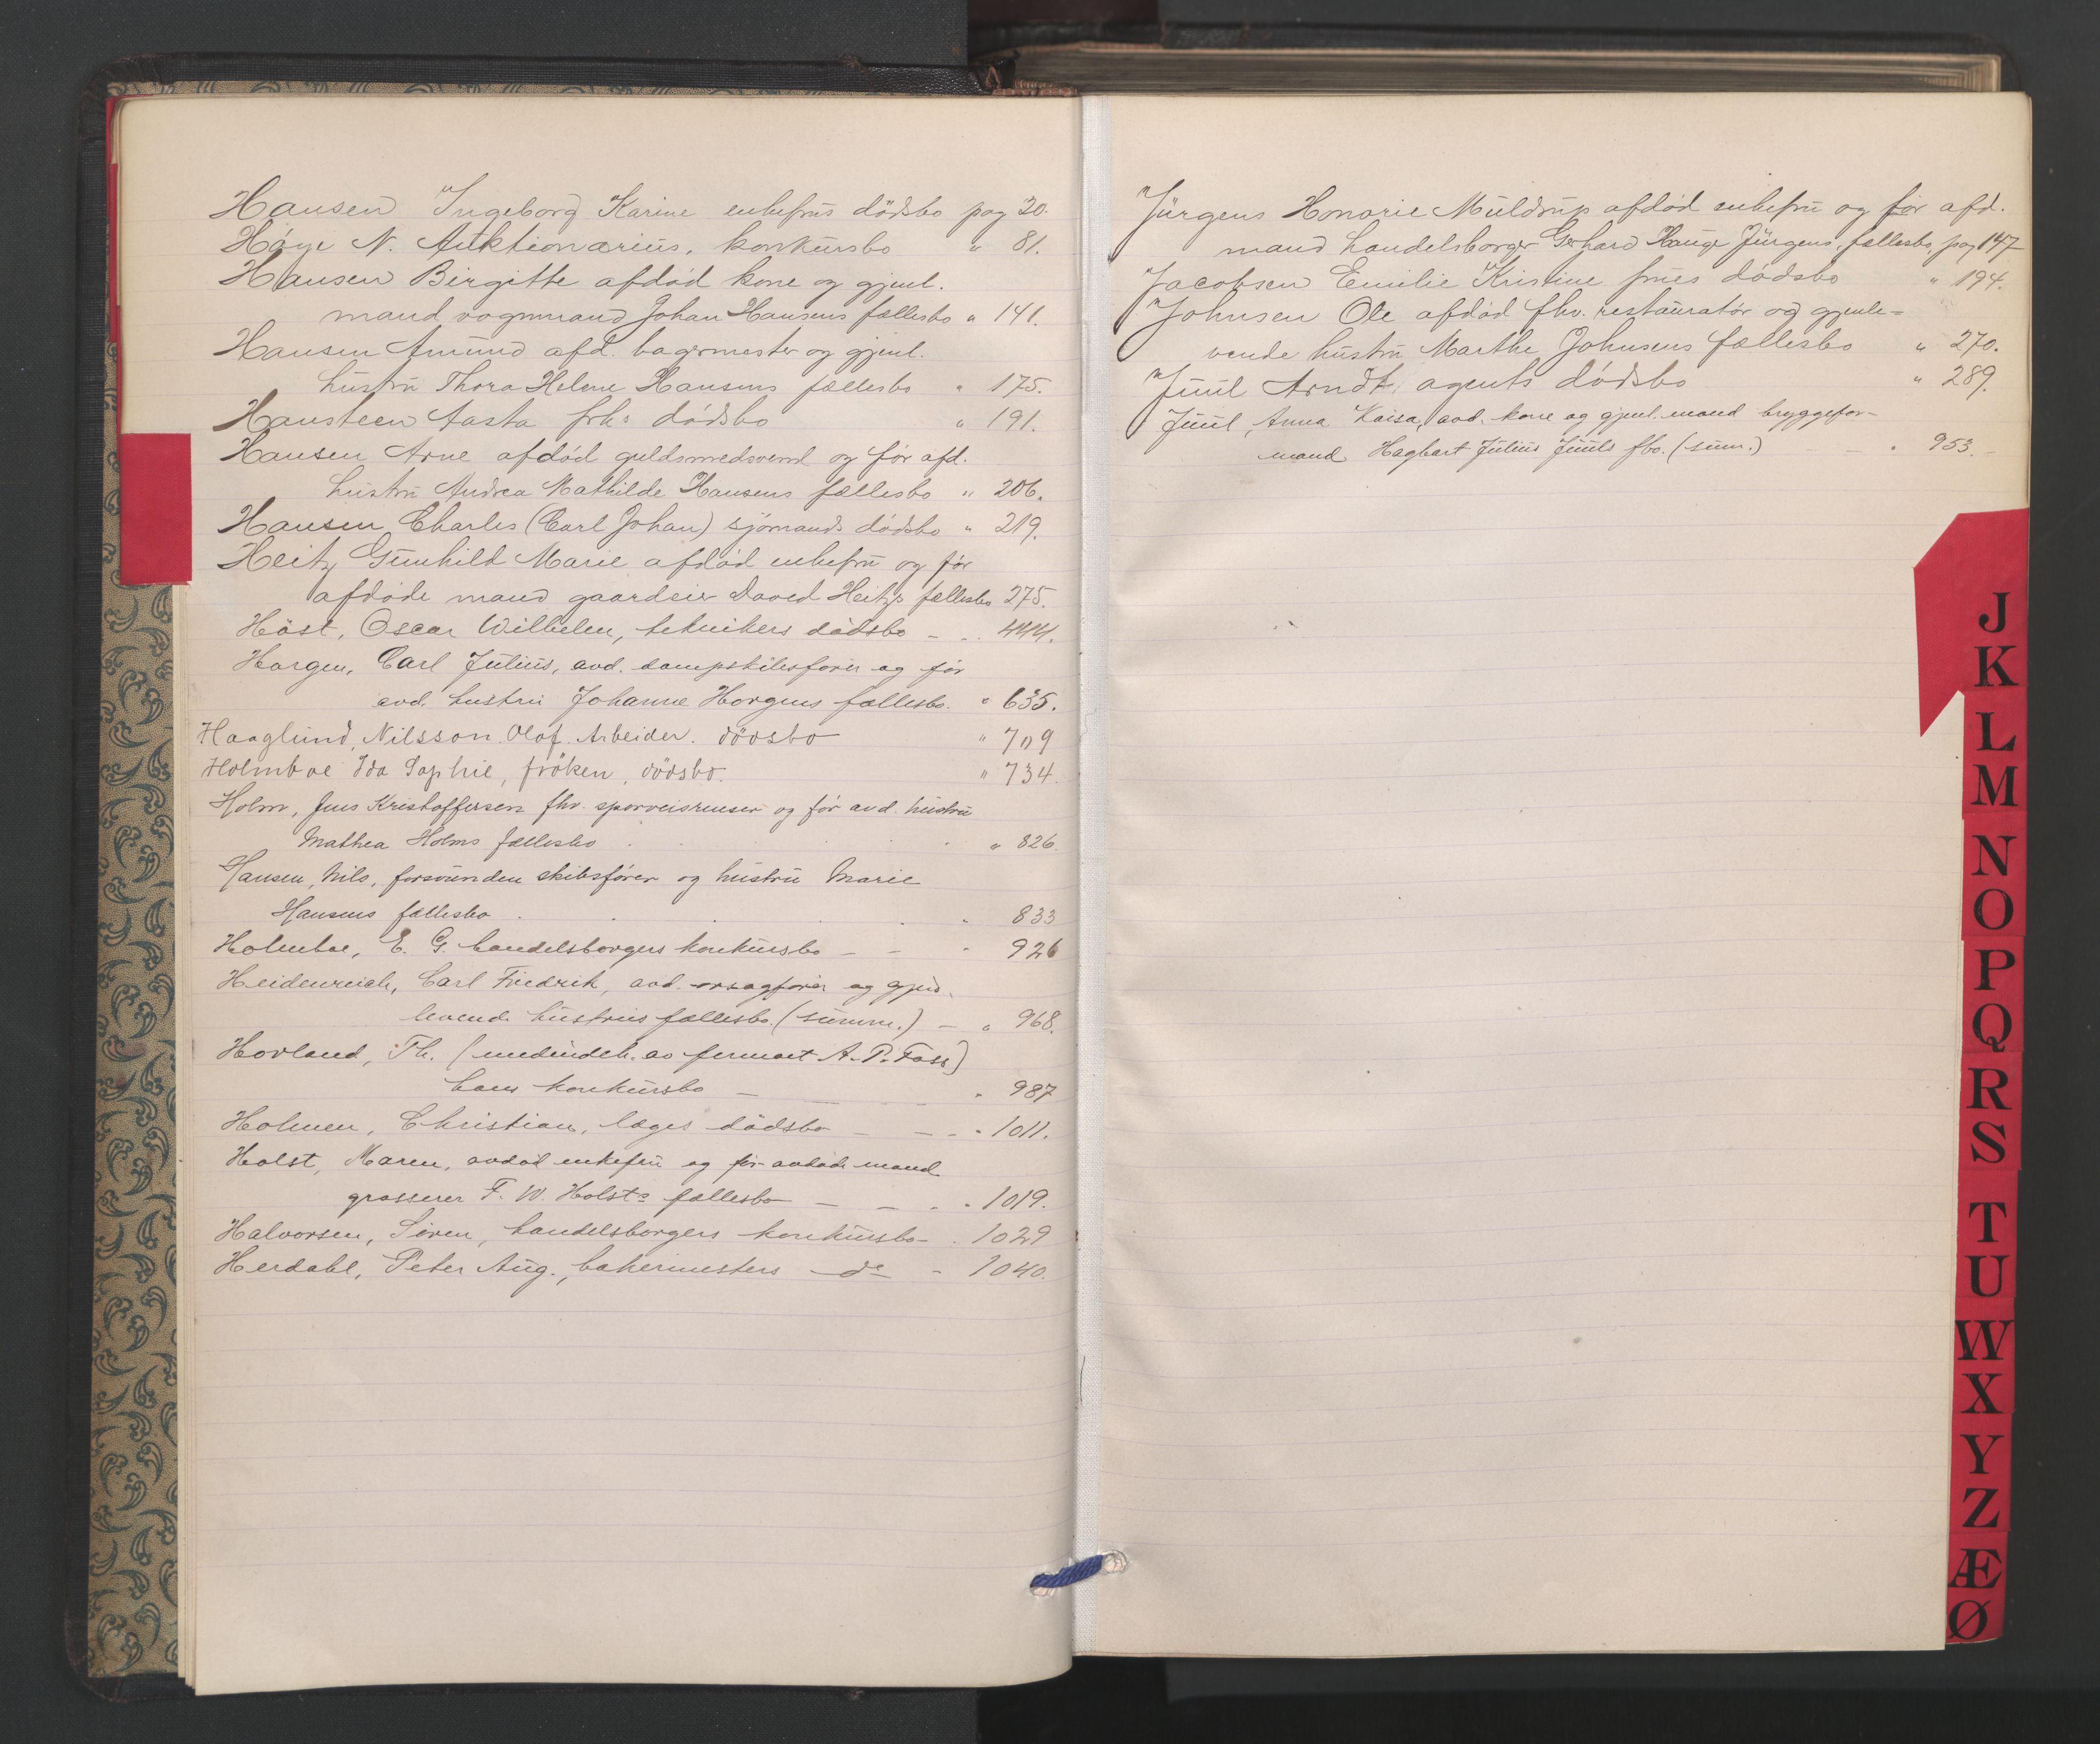 Hansen Ingeborg Karine enkefrus dödsbo pag 20.
Höye N. Auktionarius, konkursbo " 81.
Hansen Birgitte afdöd kone og gjenl.
mand vognmand Johan Hansens fællesbo " 141.
Hansen Amund afd. bagermester og gjenl.
hustru Thora Helene Hansens fællesbo " 175.
Hansteen Aasta frk: dödsbo " 191.
Hansen Arne afdöd guldsmedsvend og för afd.
hustru Andrea Mathilde Hansens fællesbo " 206.
Hansen, Charles (Carl Johan) sjömands dödsbo " 219.
Heitz Gunhild Marie afdöd enkefru og för
afdöde mand gaardeier David Heitz's fællesbo 275.
Höst, Oscar Wilhelm, teknikers dödsbo - " 444.
Horgen, Carl Julius, avd. dampskibsförer og för
avd. hustru Johanne Horgens fællesbo. " 635.
Haaglund, Nilsson Olof. Arbeider. dödsbo " 709
Holmboe Ida Sophie, fröken, dödsbo. " 734.
Holm, Jens Kristoffersen fhv. sporveisrenser og för avd. hustru
Mathea Holms fællesbo " 826.
Hansen, Nils, forsvunden skibsförer og hustru Marie
Hansens fællesbo " 833
Holmboe, E. G. handelsborgers konkursbo - - " 926
Heidenreich, Carl Fredrik, avd. orsagförer og gjen-
levende hustrus fællesbo. (summ.) - " 968.
Hovland, Th. (medindeh. av firmaet A. P. Foss)
hans konkursbo - " 987
Holmen, Christian, læges dödsbo - - - " 1011.
Holst, Maren, avdöd enkefru og för avdöde mand
grosserer F. W. Holsts fællesbo - - " 1019.
Halvorsen, Sören, handelsborgers konkursbo - " 1029
Herdahl, Peter Aug., bakermesters do - 1040.
Jürgens Honorie Muldrup afdöd enkefru og för afd.
mand handelsborger Gerhard Hauge Jürgens, fællesbo, pag 147
Jacobsen Emilie Kristine frues dödsbo " 194.
Johnsen Ole afdöd fhv. restauratör og gjenle-
vende hustru Marthe Johnsens fællesbo " 270.
Juul Arndt, agents dödsbo " 289.
Juul, Anna Kaisa, avd. kone og gjenl. mand bryggefor-
mand Hagbart Julius Juuls fbo. (sum.) - - " 953.
J
K
L
M
N
O
P
Q
R
S
T
U
W
X
Y
Z
Æ
Ø